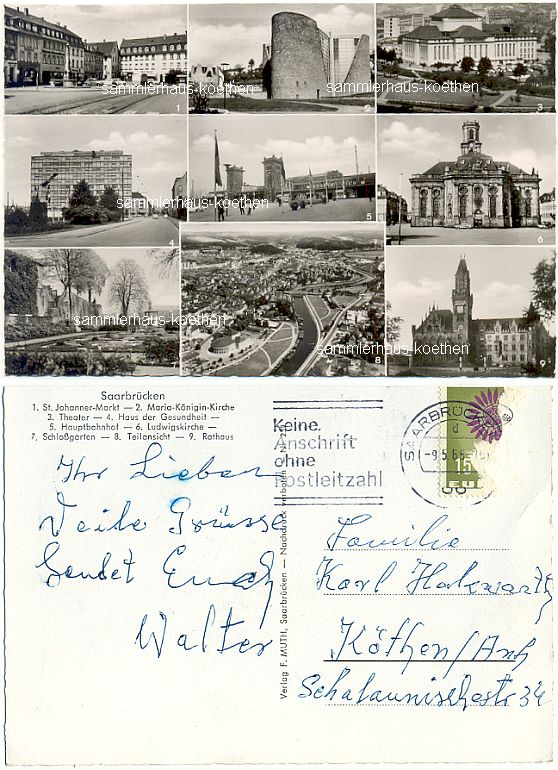 sammlerhaus-koethen
1
sammlerhaus-koethen
2
sammlerhaus-koethen
3
sammlerhaus-koethen
4
sammlerhaus-koethen
5
sammlerhaus-koethen
6
sammlerhaus-koethen
sammlerhaus-koethen
8
sammlerhaus-koethen
9
Saarbrücken
1. St. Johanner-Markt — 2. Maria-Königin-Kirche
3. Theater — 4. Haus der Gesundheit —
5. Hauptbahnhof — 6. Ludwigskirche —
7. Schloßgarten — 8. Teilansicht — 9. Rathaus
Ihr Lieben
Viele Grüsse
Sendet Euch
Walter
Verlag F. MUTH, Saarbrücken — Nachdruck verboten
Keine
Anschrift
ohne
Postleitzahl
SAARBRÜCK
d
-9.5.66
15
Familie
Karl
Köthen/Anh
34